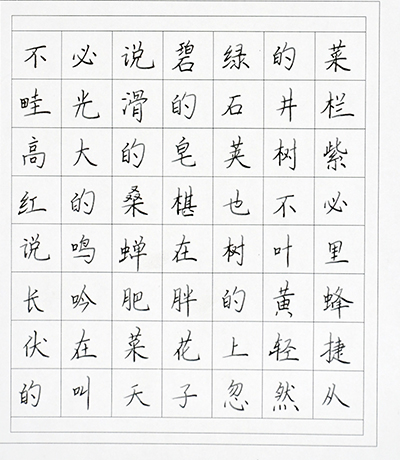 不必说碧绿的菜
畦光滑的石井栏
高大的皂荚树紫
红的桑椹也不必
说鸣蝉在树叶里
长吟肥胖的黄蜂
伏在菜花上轻捷
的叫天子忽然从